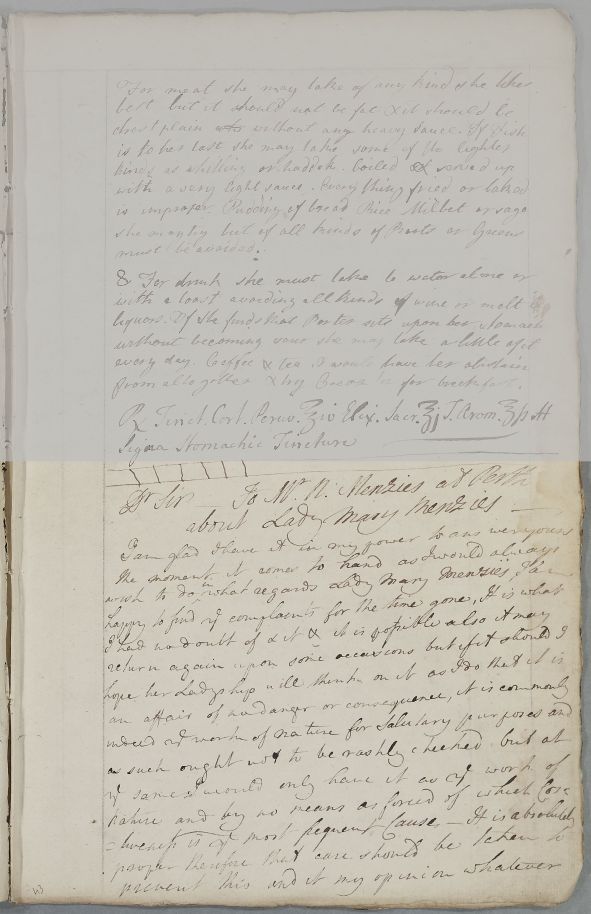 For meat she may take of any kind she likes
best but it should not be fat & it should be
drest plain without any heavy sauce. If Fish
is to her tast she may take some of the lighter
kinds as whitting or haddok. boiled & served up
with a very light sauce. Every thing fried or baked
is improper. Pudding of bread Rice Millet or sago
she may try but of all kinds of Roots or Greens
must be avoided.
& For drink she must take to water alone or
with a toast avoiding all kinds of wine or malt
liquors. If she finds that Porter sits upon her stomach
without becoming sour she may take a little of it
every day. Coffee & tea I would have her abstain
from altogether & try Cocoa for breakfast.
℞ Tinct. Cort. Peruv. ℥iv Elix. Sacr. ℥j T. Arom. ℥ß M
Signa Stomachic Tincture
Dr Sir To Mr. N. Menzies at Perth
about Lady Mary Menzies —
I am glad I have it in my power to answer yours
the moment it comes to hand as I would always
wish to do in what regards Lady Mary Menzies, I am
happy to find ye complaints for the time gone, It is what
I had no doubt of & it is possible also it may
return again upon some occasions but if it should I
hope her Ladyship will think on it as I do that it is
an affair of no danger or consequence, it is commonly
indeed ye work of nature for salutary purposes and
as such ought not to be rashly checked. but at
ye same I would only have it as ye work of
nature and by no means as forced of which Cos=
=tiveness is ye most frequent Cause. — It is absolutely
proper therefore that care should be taken to
prevent this and it my opinion whatever